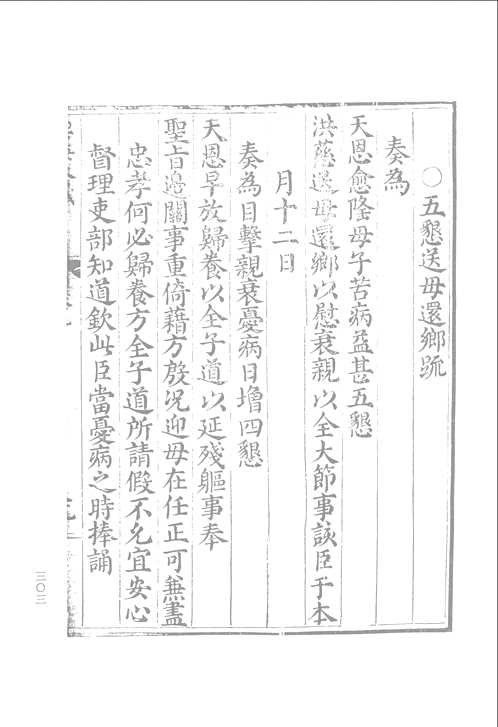 ○五懇送母還鄉疏
奏為
天恩愈隆母子苦病益甚五懇
洪慈送母還鄉以慰衰親以全大節事該臣于本
月十二日
奏為目擊親衰憂病日增四懇
天恩早放歸養以全子道以延殘軀事奉
聖旨邊關事重倚藉方殷况迎母在任正可兼盡
忠孝何必歸養方全子道所請假不允宜安心
督理吏部知道欽此臣當憂病之時捧誦
三〇三